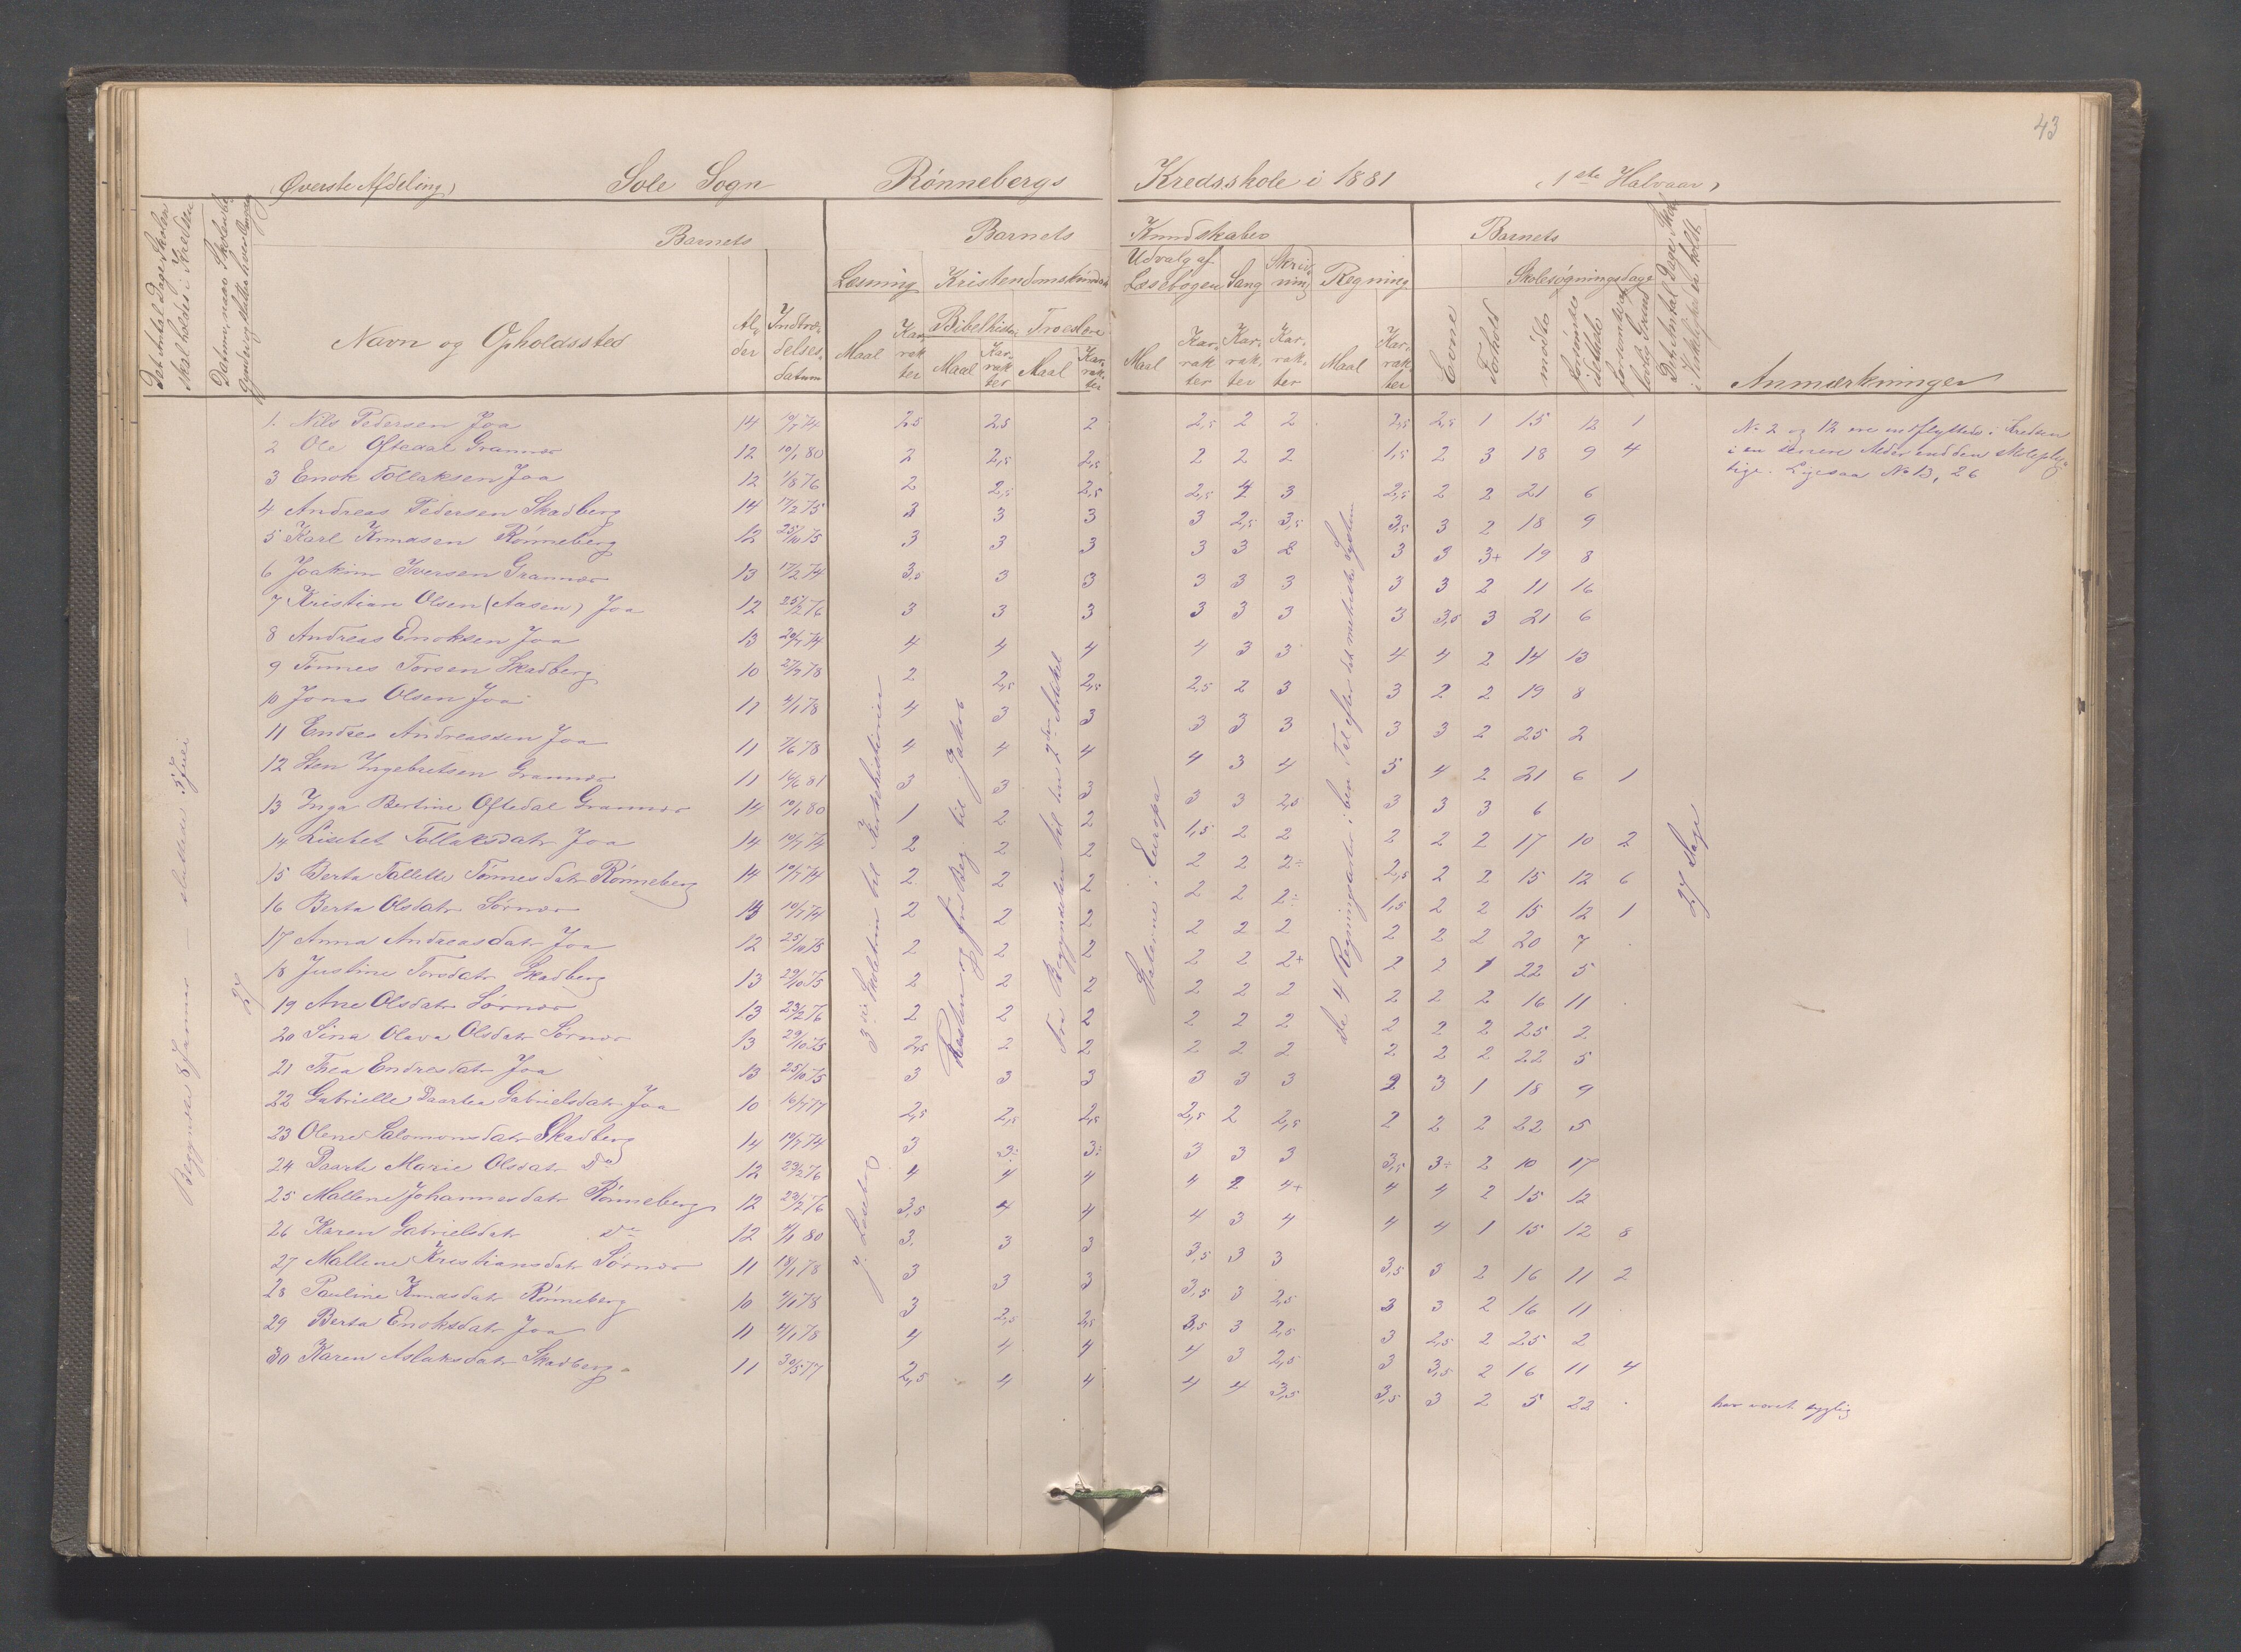 43
(Øverste Afdeling) Sole Sogn Rønnebergs Kredsskole i 1881 (1ste Halvaar)
Det Antal Dage Skolen skal holdes i Kredsen
Datum, naar Skolen begynder og slutter hver Omgang
Barnets
Navn og Opholdssted
Alder
Indtrædelsesdatum
Barnets Kundskaber
Læsning
Maal
Karakter
Kristendomskundskab
Bibelhistorie
Maal
Karakter
Troeslære
Maal
Karakter
Udvalg af Læsebogen
Maal
Karakter
Sang
Karakter
Skrivning
Karakter
Regning
Maal
Karakter
Barnets
Evne
Forhold
Skolesøgningsdage
mødte
forsømte i det Hele
forsømte af lovlig Grund
Det Antal Dage Skolen i Virkeligheden er holdt
Anmærkninger
Begyndte 8 Januar — sluttede 5 Juli
27
3die Skoletrin til Kirkehistorien
j. Læsebog
Fra Begyndelsen til den 2den Artikel
Staterne i Europa
de 4 Regningsarter i ben. Tal efter det metriske System
27 Dage
1. Nils Pedersen Joa 14 10/7 74 2,5 2,5 2 2,5 2 2 2,5 2,5 1 15 12 1
2 Ole Oftedal Grannes 12 10/1 80 2 2,5 2,5 2 2 2 1,5 2 3 18 9 4
3 Enok Tollaksen Joa 12 1/8 76 2 2,5 2,5 2,5 4 3 2,5 2 2 21 6
4 Andreas Pedersen Skadberg 14 17/2 75 3 3 3 3 2,5 3,5 3,5 3 2 18 9
5 Karl Knudsen Rønneberg 12 25/10 75 3 3 3 3 3 2 3 3 3+ 19 8
6 Joakim Iversen Grannes 13 17/2 74 3,5 3 3 3 3 3 3 3 2 11 16
7 Kristian Olsen (Aasen) Joa 12 25/2 76 3 3 3 3 3 3 3 3,5 3 21 6
8 Andreas Enoksen Joa 13 20/7 74 4 4 4 4 3 3 4 4 2 14 13
9 Tønnes Torsen Skadberg 10 27/7 78 2 2,5 2,5 2,5 2 3 3 2 2 19 8
10 Jonas Olsen Joa 11 4/1 78 4 3 3 3 3 3 3 3 2 25 2
11 Endre Andreassen Joa 11 7/6 78 4 4 4 4 3 4 5 4 2 21 6 1
12 Sten Ingebretsen Grannes 11 16/6 81 3 3 3 3 3 2,5 3 3 3 6
13 Inga Bertine Oftedal Grannes 14 10/1 80 1 2 2 1,5 2 2 2 2 2 17 10 2
14 Lisebet Tollaksdatr Joa 14 10/7 74 2 2 2 2 2 2÷ 2,5 2 2 15 12 6
15 Berta Tallette Tønnesdatr Rønneberg 14 10/7 74 2 2 2 2 2 2÷ 1,5 2 2 15 12 1
16 Berta Olsdatr Sørnes 14 10/7 74 2 2 2 2 2 2 2 2 2 20 7
17 Anna Andreasdatr Joa 12 25/10 75 2 2 2 2 2 2+ 2 2 1 22 5
18 Justine Torsdatr Skadberg 13 29/10 75 2 2 2 2 2 2 2 2 2 16 11
19 Ane Olsdatr Sørnes 13 23/2 76 2 2 2 2 2 2 2 2 2 25 2
20 Sina Olava Olsdatr Sørnes 13 29/10 75 2,5 2 2 2 2 2 2 2 2 22 5
21 Thea Endresdatr Joa 13 25/10 75 3 3 3 3 3 3 2 3 1 18 9
22 Gabrielle Daartea Gabrielsdatr Joa 10 16/7 77 2,5 2,5 2,5 2,5 2 2,5 2 2 2 22 5
23 Olene Salomonsdatr Skadberg 14 10/7 74 3 3÷ 3÷ 3 3 3 3,5 3÷ 2 10 17
24 Daarte Marie Olsdatr Do 12 23/2 76 4 4 4 4 2 4+ 4 4 2 15 12
25 Mallene Johannesdatr Rønneberg 12 23/2 76 3,5 4 4 4 3 4 4 4 1 15 12 8
26 Karen Gabrielsdatr Do 12 9/1 80 3 3 3 3,5 3 3 3,5 3 2 16 11 2
27 Mallene Kristiansdatr Sørnes 11 18/1 78 3 3 3 3,5 3 2,5 3 3 2 16 11
28 Pauline Knudsdatr Rønneberg 10 4/1 78 3 2,5 2,5 3,5 3 2,5 3 2,5 2 25 2
29 Berta Enoksdatr Joa 11 4/1 78 4 4 4 4 3 2,5 3 3,5 2 16 11 4
30 Karen Aslaksdatr Skadberg 11 30/5 77 2,5 4 4 4 4 3,5 3,5 3 2 5 22
No 2 og 12 ere indflyttede i Kredsen
i en senere Alder end den skoleplig-
tige. Ligesaa No 13, 26
har været syglig